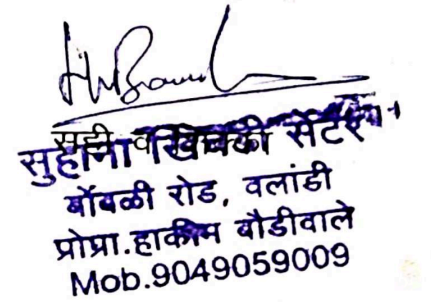 सही व
सुहाना खिडकी सेंटर
बोंबळी रोड, वलांडी
प्रोप्रा.हाकीम बौडीवाले
Mob.9049059009